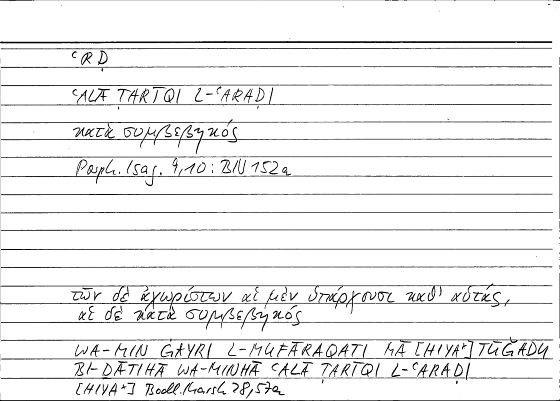 ᶜRḌ
ᶜALĀ ṬARĪQI L-ᶜARAḌI
κατὰ συμβεβηκός
Porph. Isag. 9,10 : BN 152a
τῶν δὲ ἀχωρίστων αἱ μὲν ὑπάρχουσι καθ' αὑτάς,
αἱ δὲ κατὰ συμβεβηκός
WA-MIN ĠAYRI L-MUFĀRAQATI MĀ [HIYA*] TŪǦADU
BI-ḎĀTIHĀ WA-MINHĀ ᶜALĀ ṬARĪQI L-ᶜARAḌI
[HIYA*] Bodl. Marsh 28,57a